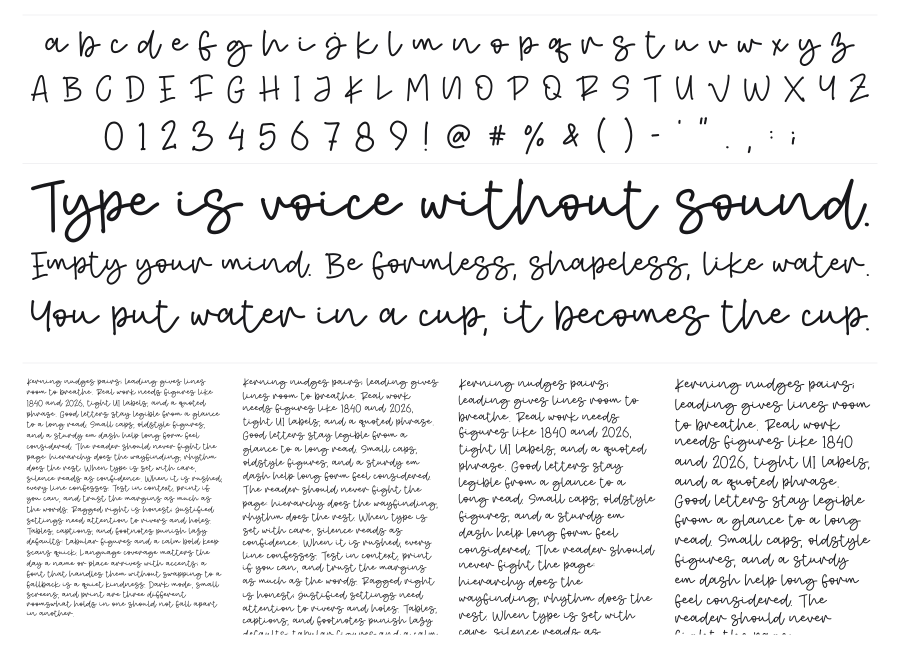 a b c d e f g h i j k l m n o p q r s t u v w x y z
A B C D E F G H I J K L M N O P Q R S T U V W X Y Z
0 1 2 3 4 5 6 7 8 9 ! @ # % & ( ) - ' " . , : ;
Type is voice without sound.
Empty your mind. Be formless, shapeless, like water.
You put water in a cup, it becomes the cup.
Kerning nudges pairs; leading gives lines
room to breathe. Real work needs figures like
1840 and 2026, tight UI labels, and a quoted
phrase. Good letters stay legible from a glance
to a long read. Small caps, oldstyle figures,
and a sturdy em dash help long form feel
considered. The reader should never fight the
page: hierarchy does the wayfinding, rhythm
does the rest. When type is set with care,
silence reads as confidence. When it is rushed,
every line confesses. Test in context, print if
you can, and trust the margins as much as
the words. Ragged right is honest. Justified
settings need attention to rivers and holes.
Tables, captions, and footnotes punish lazy
defaults. Tabular figures and a calm bold keep
scans quick. Language coverage matters the
day a name or place arrives with accents; a
font that handles them without swapping to a
fallback is a quiet kindness. Dark mode, small
screens, and print are three different
rooms:what holds in one should not fall apart
in another.
Kerning nudges pairs; leading gives
lines room to breathe. Real work
needs figures like 1840 and 2026,
tight UI labels, and a quoted phrase.
Good letters stay legible from a
glance to a long read. Small caps,
oldstyle figures, and a sturdy em
dash help long form feel considered.
The reader should never fight the
page: hierarchy does the wayfinding,
rhythm does the rest. When type is
set with care, silence reads as
confidence. When it is rushed, every
line confesses. Test in context, print
if you can, and trust the margins
as much as the words. Ragged right
is honest. Justified settings need
attention to rivers and holes. Tables,
captions, and footnotes punish lazy
defaults. Tabular figures and a calm
Kerning nudges pairs;
leading gives lines room to
breathe. Real work needs
figures like 1840 and 2026,
tight UI labels, and a quoted
phrase. Good letters stay
legible from a glance to a
long read. Small caps, oldstyle
figures, and a sturdy em
dash help long form feel
considered. The reader should
never fight the page:
hierarchy does the
wayfinding, rhythm does the
rest. When type is set with
care, silence reads as
Kerning nudges pairs;
leading gives lines room
to breathe. Real work
needs figures like 1840
and 2026, tight UI labels,
and a quoted phrase.
Good letters stay legible
from a glance to a long
read. Small caps, oldstyle
figures, and a sturdy
em dash help long form
feel considered. The
reader should never
fight the page: